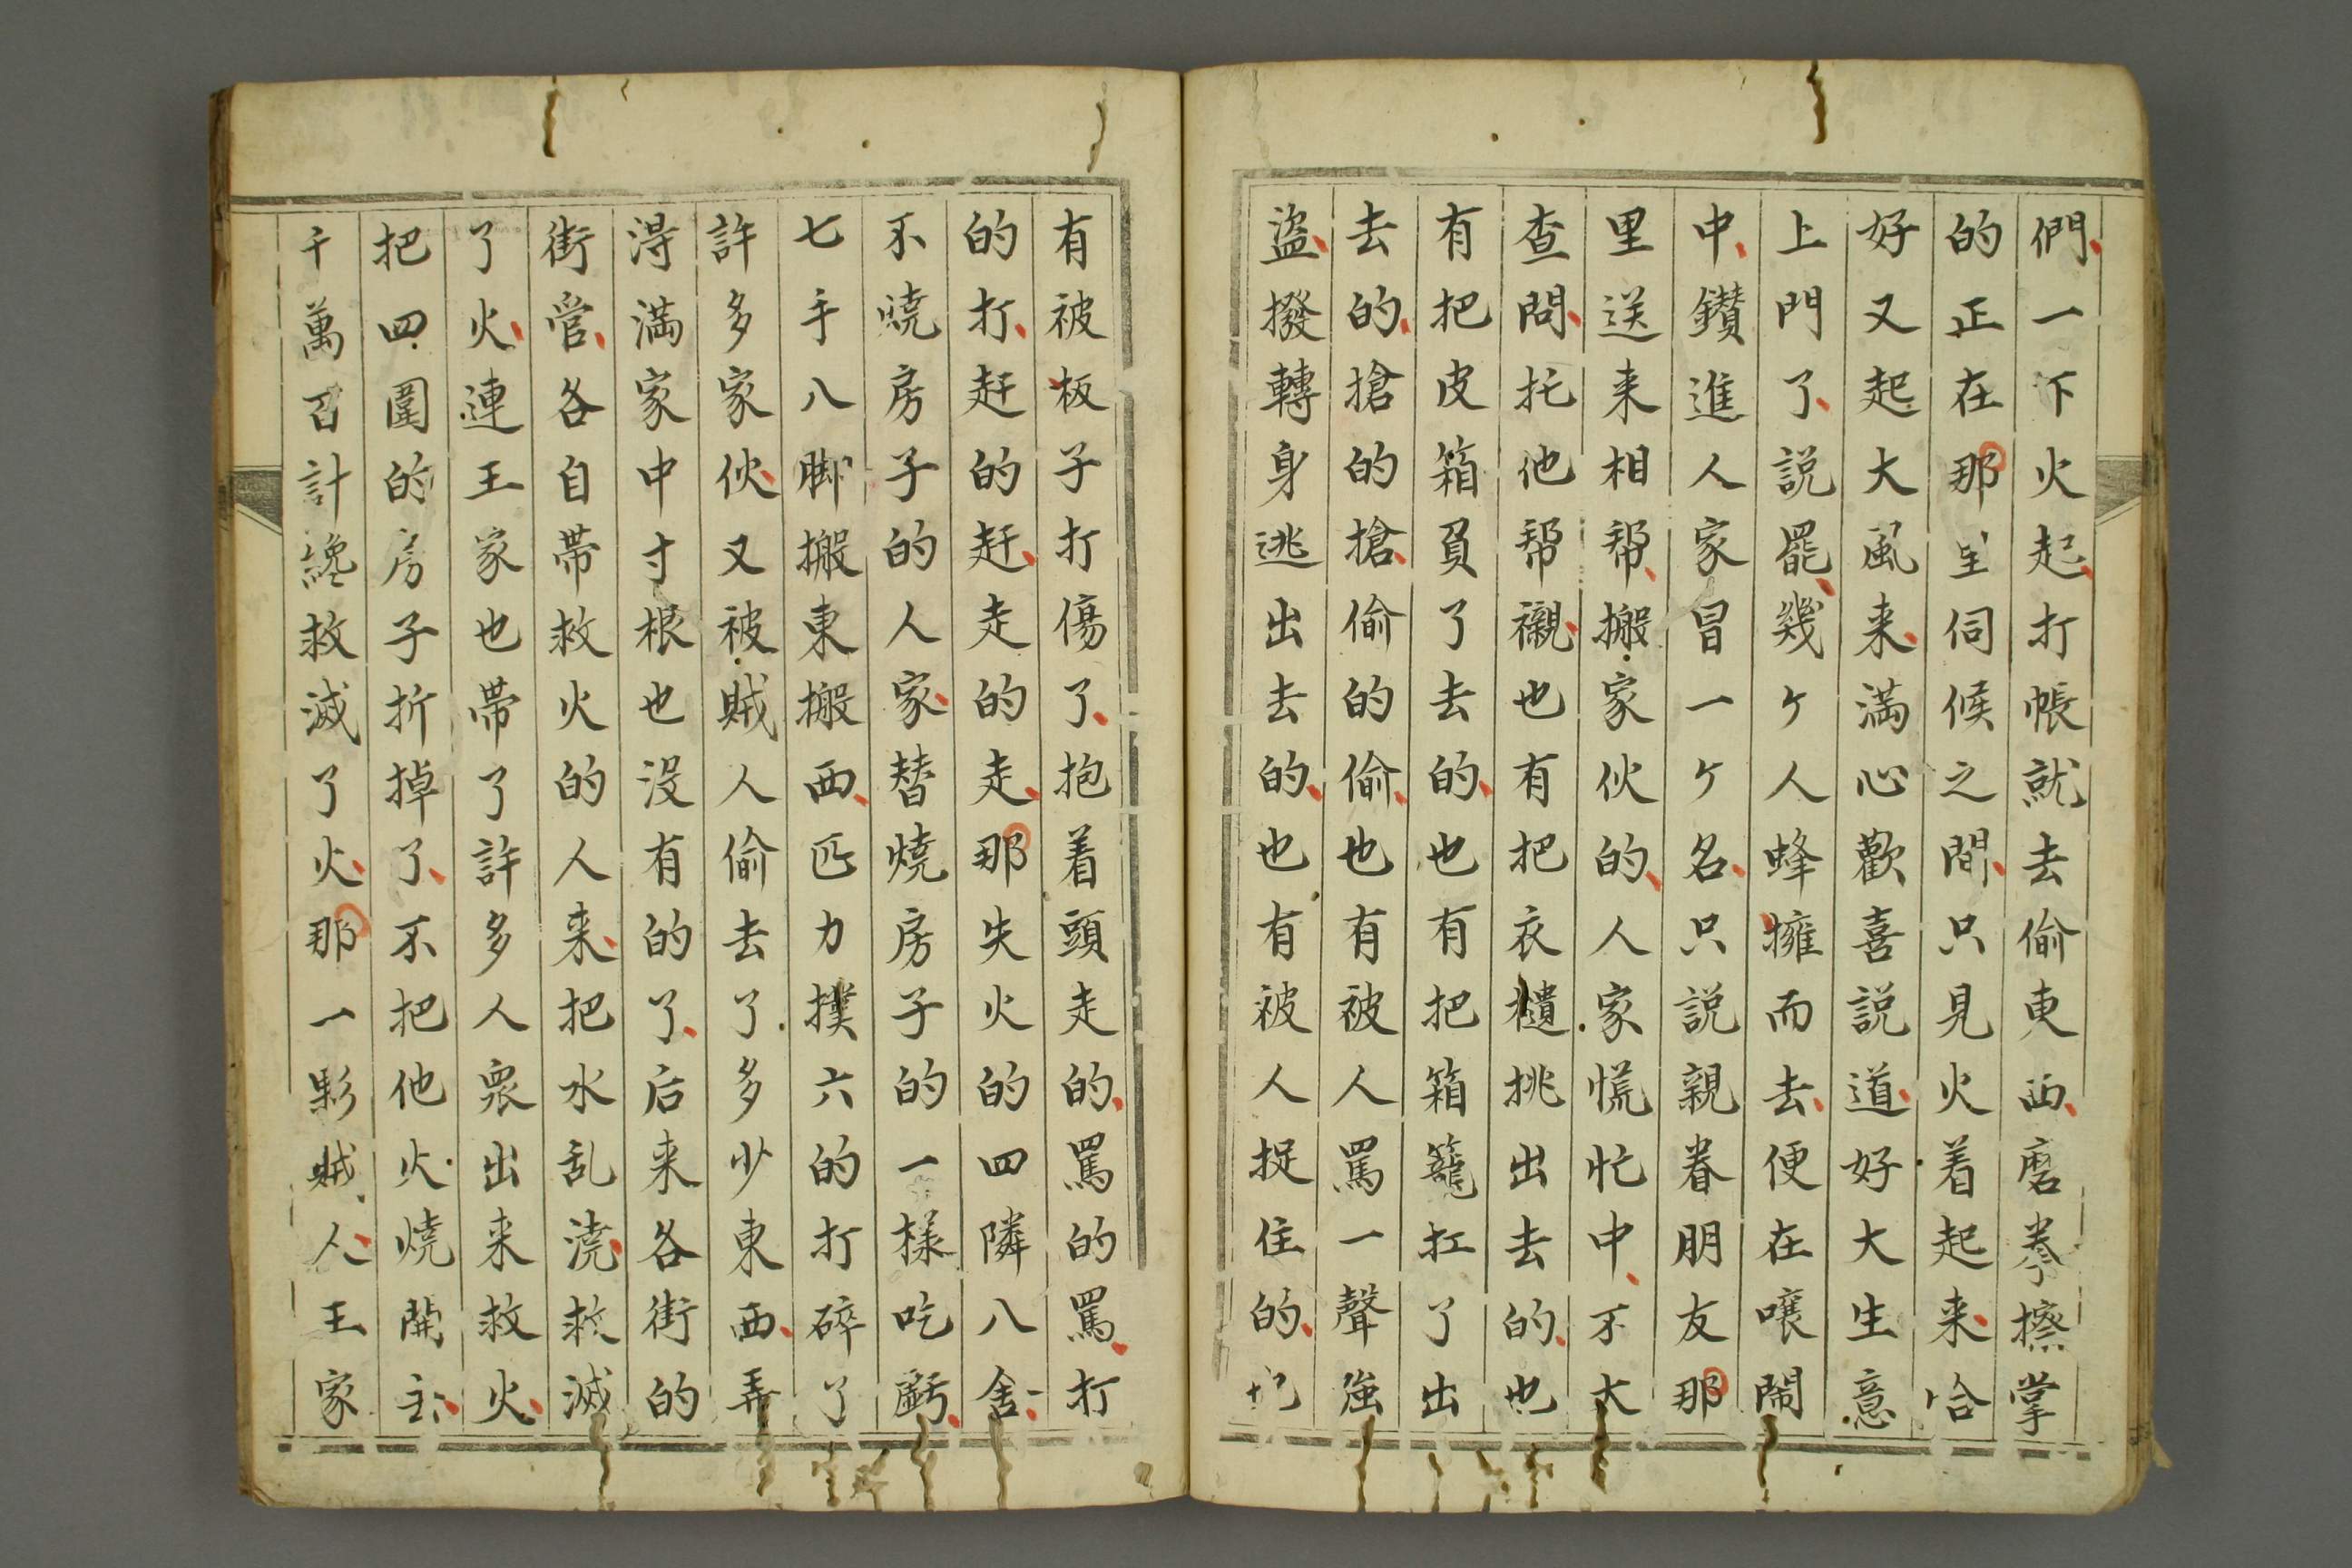 們一下火起打帳就去偷東西磨拳擦掌
的正在那里伺候之間只見火着起来恰
好又起大風来滿心歡喜説道好大生意
上門了説罷幾ケ人蜂擁而去便在嚷鬧
中鑚進人家冒一ケ名只説親眷朋友那
里送来相幇搬家伙的人家慌忙中不大
查問托他幇襯也有把衣櫃挑出去的也
有把皮箱負了去的也有把箱籠扛了出
去的搶的搶偷的偷也有被人罵一聲強
盜撥轉身逃出去的也有被人捉住的也
有被板子打傷了抱着頭走的罵的罵打
的打赶的赶走的走那失火的四隣八舍
不燒房子的人家替燒房子的一樣吃虧
七手八脚搬東搬西匹力撲六的打碎了
許多家伙又被賊人偷去了多少東西弄
淂滿家中寸根也没有的了后来各街的
街管各自帶救火的人来把水乱澆救滅
了火連王家也帶了許多人衆出来救火
把四圍的房子折掉了不把他火燒開去
千萬百計纔救滅了火那一夥賊人王家